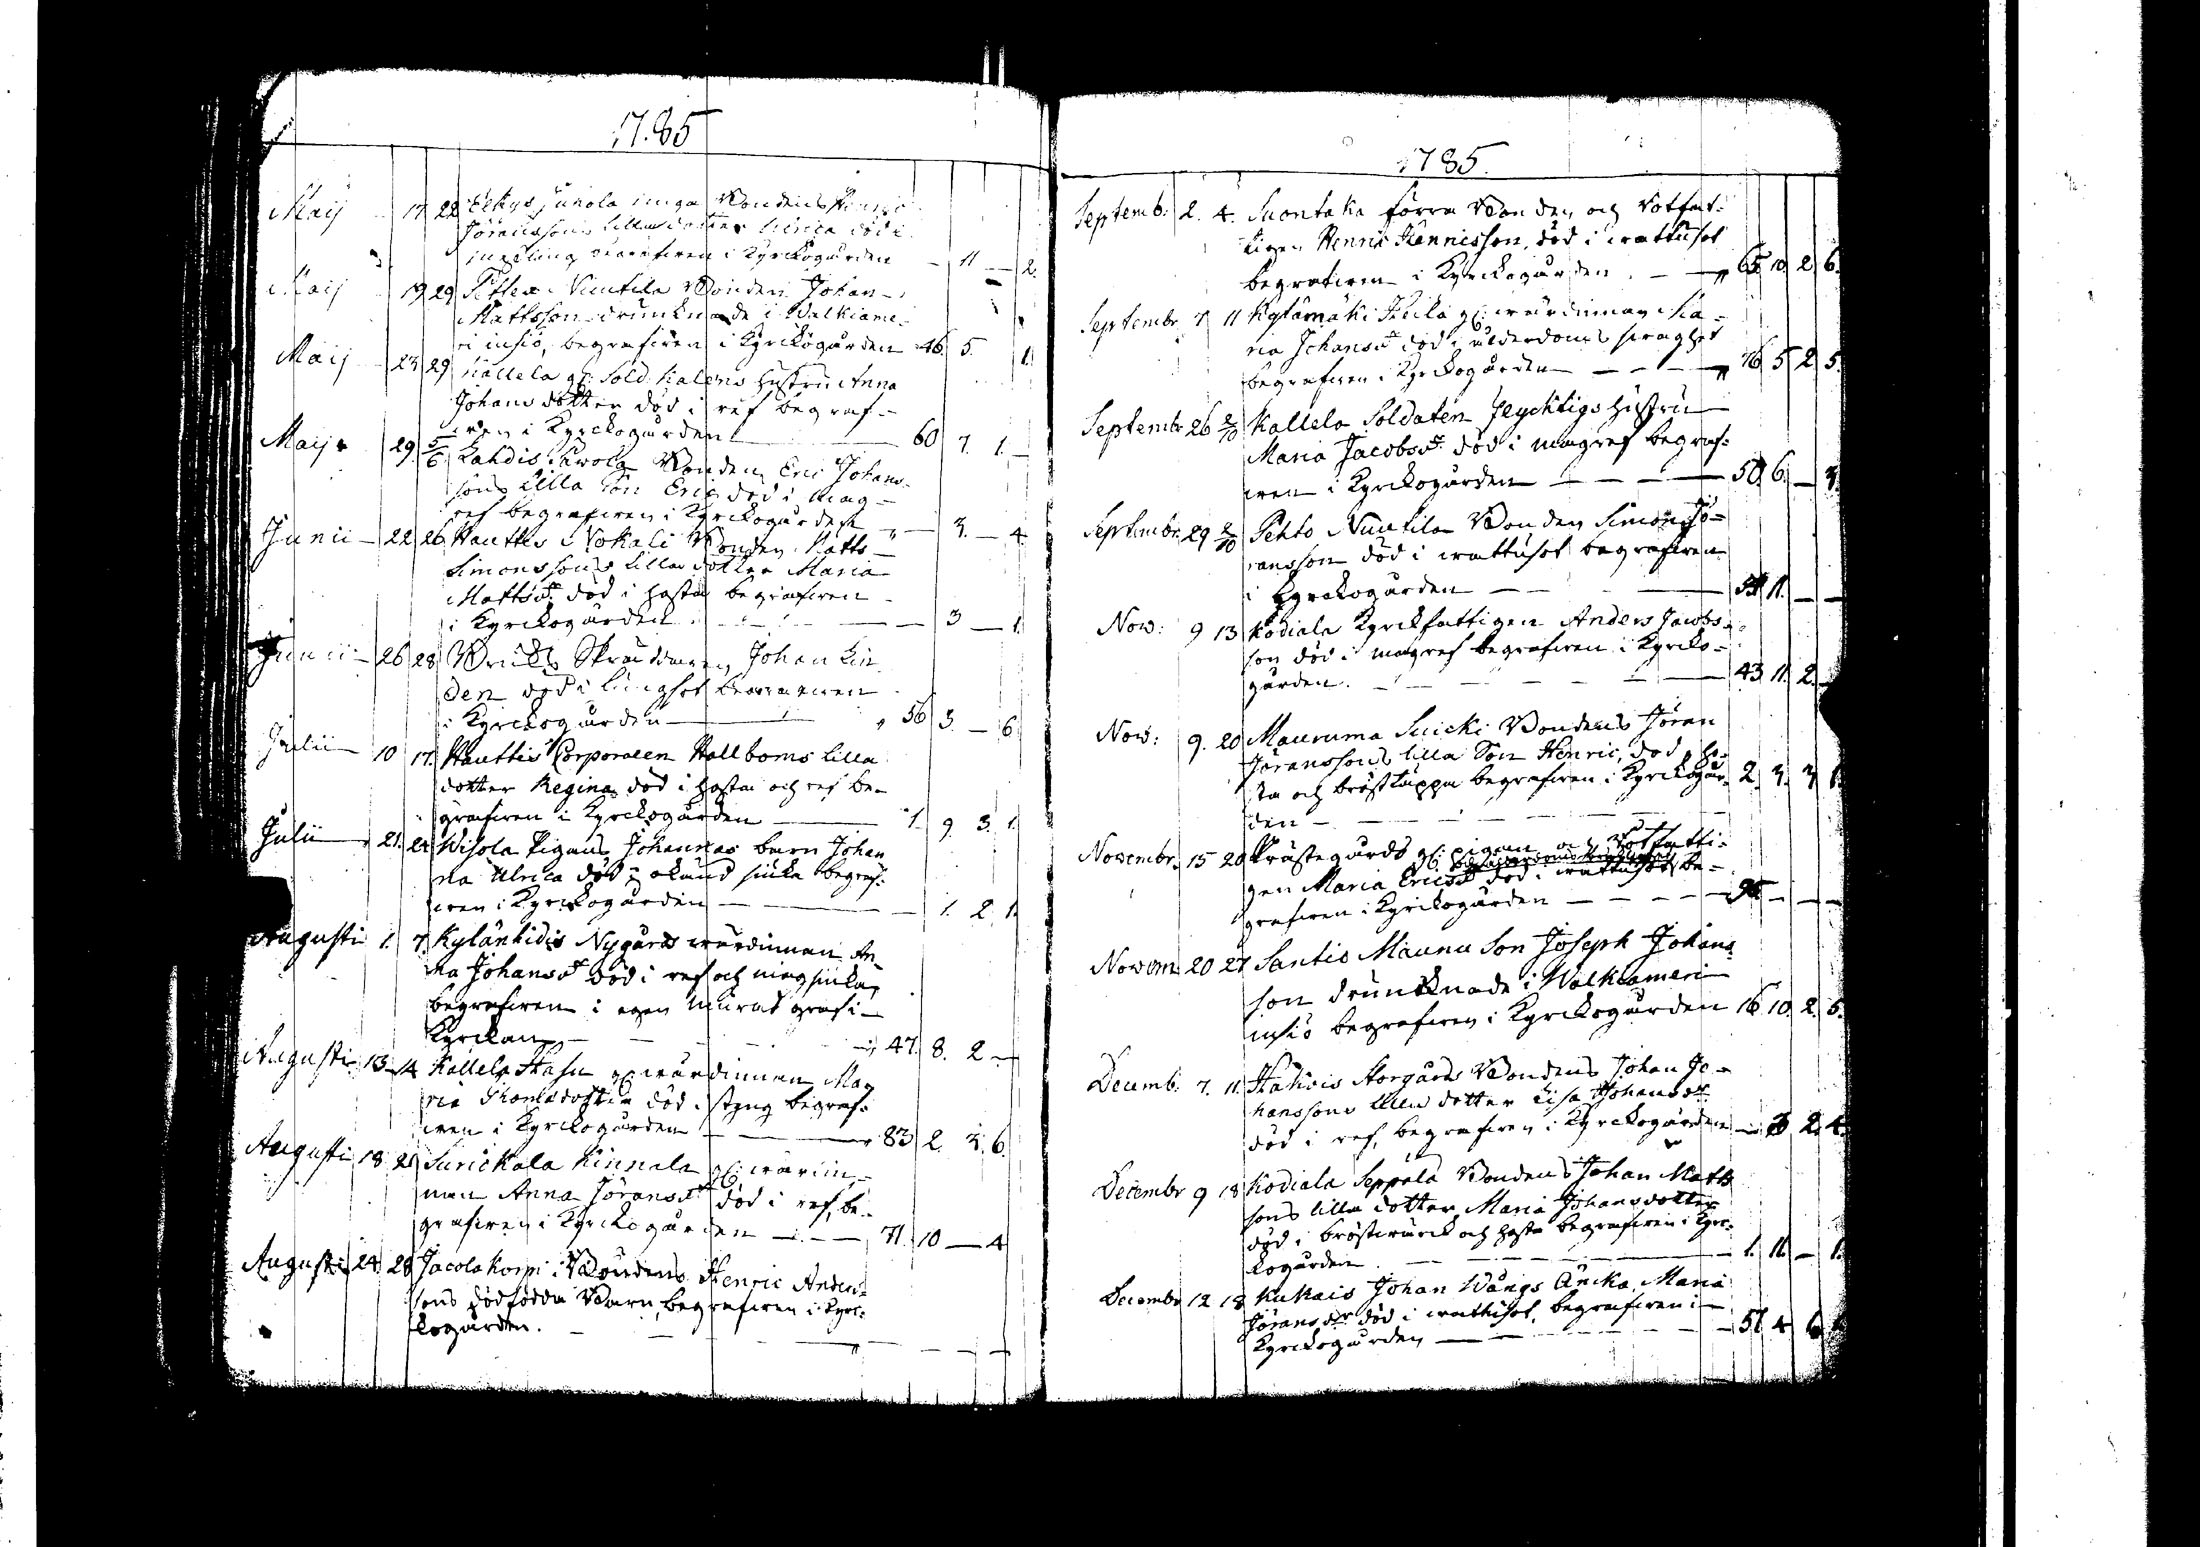 1785
Maij 17 22 Eekys Juhola unga Bondens
Jöranssons lilla dotter Ulrica död i
begrafwen i Kyrckogården — 11 — 2.
Maij 19 29 Nuutila Bonden Johan
Mattsson drunknade i Walkiame-
ri insiö, begrafwen i Kyrckogården 46 5. 1
Maij 23 29 Kallela gl: Sold. Kalens Hustru Anna
Johans dotter död i ref begraf-
wen i Kyrckogården 60 7. 1. —
Maij 29 5/6 Lahdis Säwola Bonden Eric Johans-
sons lilla Son Eric död i mag-
ref begrafwen i Kyrckogården — 3. — 4
Junii 22 26 Hauttis Nokali Bonden Matts
Simonssons lilla dotter Maria
Mattsdr. död i hosta begrafwen
i Kyrckogården — 3 — 1.
Junii 26 28 Skräddaren Johan Lin
den död i lungsot begrafwen
i Kyrckogården 56 3. — 6
Julii 10 17. Hauttis Corporalen Hallboms lilla
dotter Regina död i hosta och ref be-
grafwen i Kyrckogården — 1. 9. 3. 1.
Julii 21. 24 Wisola Pigans Johannas barn Johan
na Ulrica död i okänd siuka begraf-
wen i Kyrckogården — 1. 2 1.
Augusti 1. 7 Kylänkidis Nygårds wärdinnan An
na Johansdr död i ref och magsiuka,
begrafwen i egen murad graf i
Kyrckan — 47. 8. 2 —
Augusti 13 14 Kallela Hasu gl: wärdinnan Ma
ria Thomædotter död i styng begraf-
wen i Kyrckogården — 83 2. 3. 6.
Augusti 18 21 Surickala Kinnala gl: wärdin-
nan Anna Jöransdr död i ref, be-
grafwen i Kyrckogården — 71. 10 — 4
Augusti 24. 28 Jacolakorpi Bondens Henric Anders-
sons dödfödda Barn, begrafwen i Kyrc-
kogården. — — —
1785.
Septemb: 2. 4. Suontaka förra Bonden och Rotfat-
tigen Henric Hennicsson, död i wattusot
begrafwen i Kyrckogården. — 65. 10 2 6.
Septembr 7 11 Kylämäki Heikä gl: wärdinnan Ma-
ria Johansdr död i ålderdoms swaghet
begrafwen i Kyrckogården — 76 5 2 5.
Septembr 26 2/10 Kallela Soldaten Flychtigs Hustru
Maria Jacobsdr. död i magref begraf-
wen i Kyrckogården — 50 6. — 3.
Septembr 29 2/10 Pehto Nuutila Bonden Simon Jö-
ransson död i wattusot begrafwen
i Kyrckogården — 54 11. — —
Nov: 9 13 Kodiala Kyrckfattigen Anders Jacobs-
son död i magref begrafwen i Kyrcko-
gården. — 43 11. 2. —
Nov: 9. 20 Mauruma Suicki Bondens Jöran
Jöranssons lilla Son Henric, död i ho-
sta och brösttäppa begrafwen i Kyrckogår- 2. 3. 3 1.
den —
Novembr. 15 20 Prästegårds gl: pigan och Rotfatti-
gen Maria Ericsdr död i wattusot be-
grafwen i Kyrckogården — 95 — — —
Novem: 20 27 Santio Maunu Son Joseph Johans
son drunknade i Walkiameri
insiö begrafwen i Kyrckogården 16 10. 2. 5.
Decemb: 7. 11. Storgårds Bondens Johan Jo-
hanssons lilla dotter Lisa Johansdr
död i ref, begrafwen i Kyrckogården — 3 2. 4.
Decembr 9 18 Kodiala Seppälä Bondens Johan Matts
sons lilla dotter Maria Johansdotter
död i bröstwärck och hosta begrafwen i Kyrc-
kogården. — 1. 11. — 1.
Decembr 12 18 Kukais Johan Wångs Änka Maria
Jöransdr död i wattusot, begrafwen i
Kyrckogården — 57 4 6